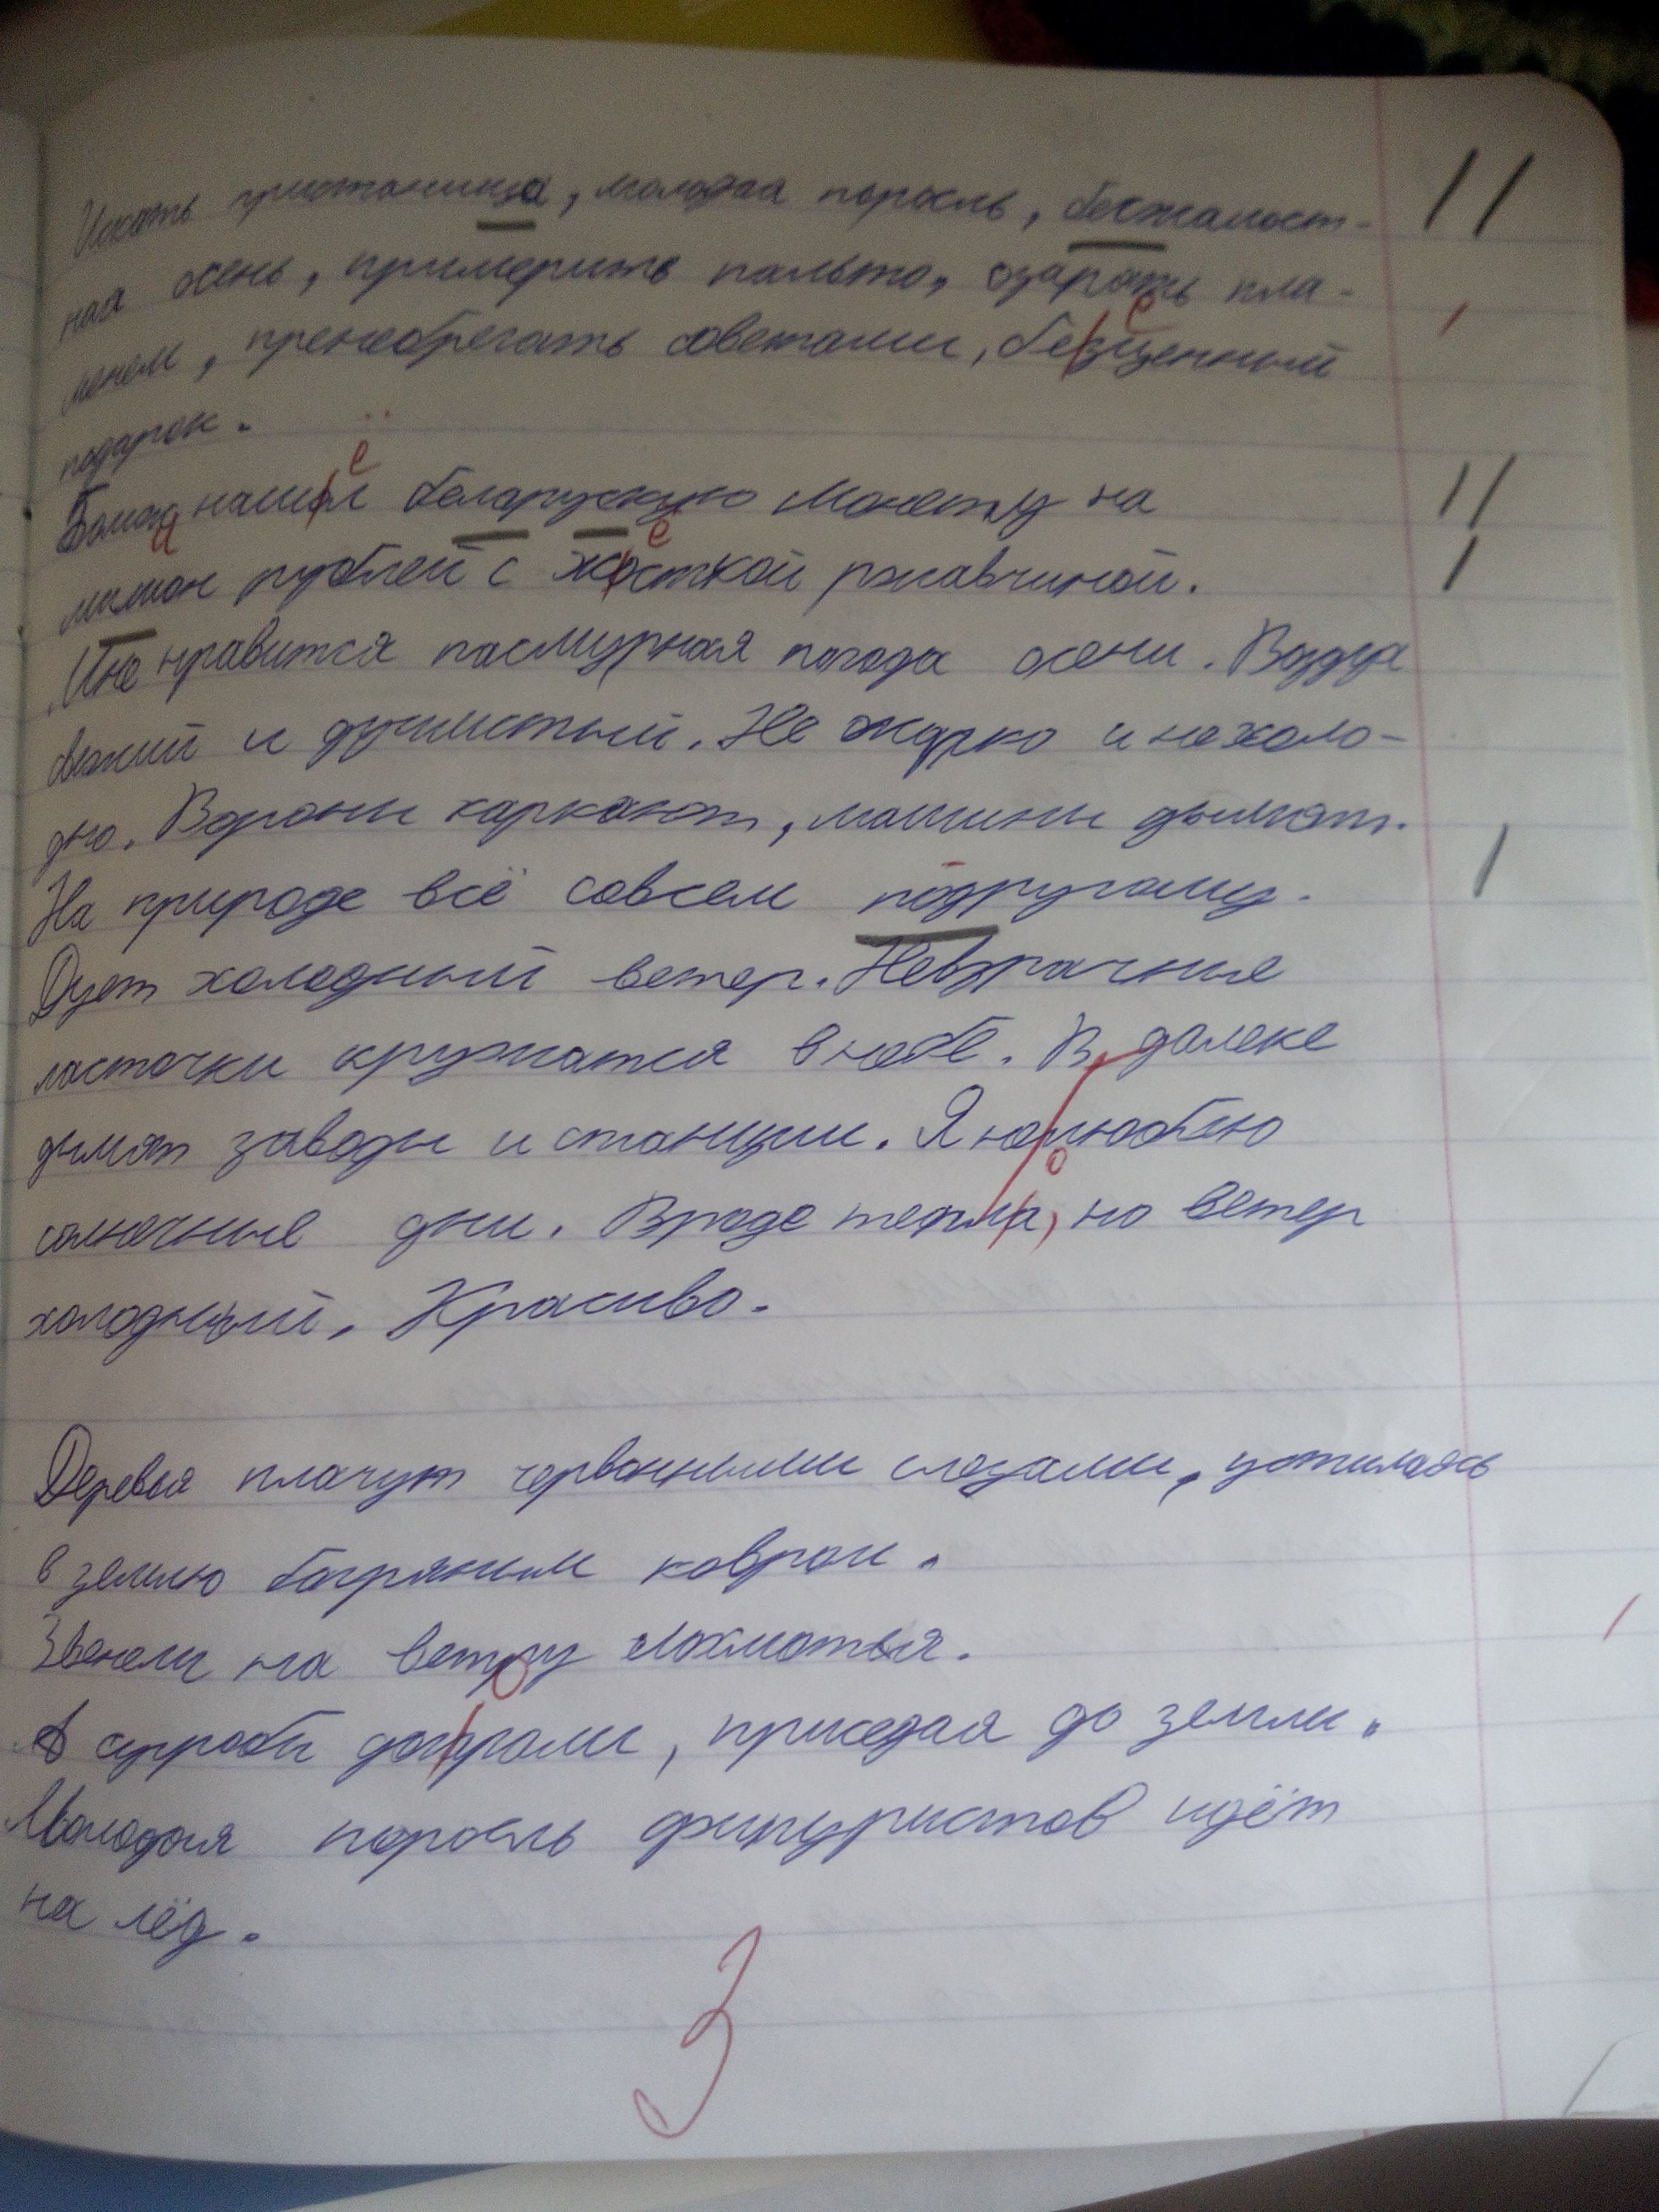 Искать пристанища, молодая поросль, безжалост-
ная осень, примерить пальто, озарять пла-
менем, пренебрегать советами, безценный
подарок.
нашол беларускую монету на
милион рублей с жосткой ржавчиной.
Мне нравится пасмурная погода осени. Воздух
свежий и душистый. Не жарко и не холо-
дно. Вороны каркают, машины дымят.
На природе всё совсем подругому.
Дует холодный ветер. Невзрачные
ласточки кружатся в небе. В далеке
дымят заводы и станции. Я не люблю
солнечные дни. Вроде тепла, но ветер
холодный. Красиво.
Деревья плачут червонными слезами,
в землю багряным ковром.
Звенели на ветру лохмотья.
А сугробы приседая до земли.
Молодая поросль фигуристов идёт
на лёд.
3